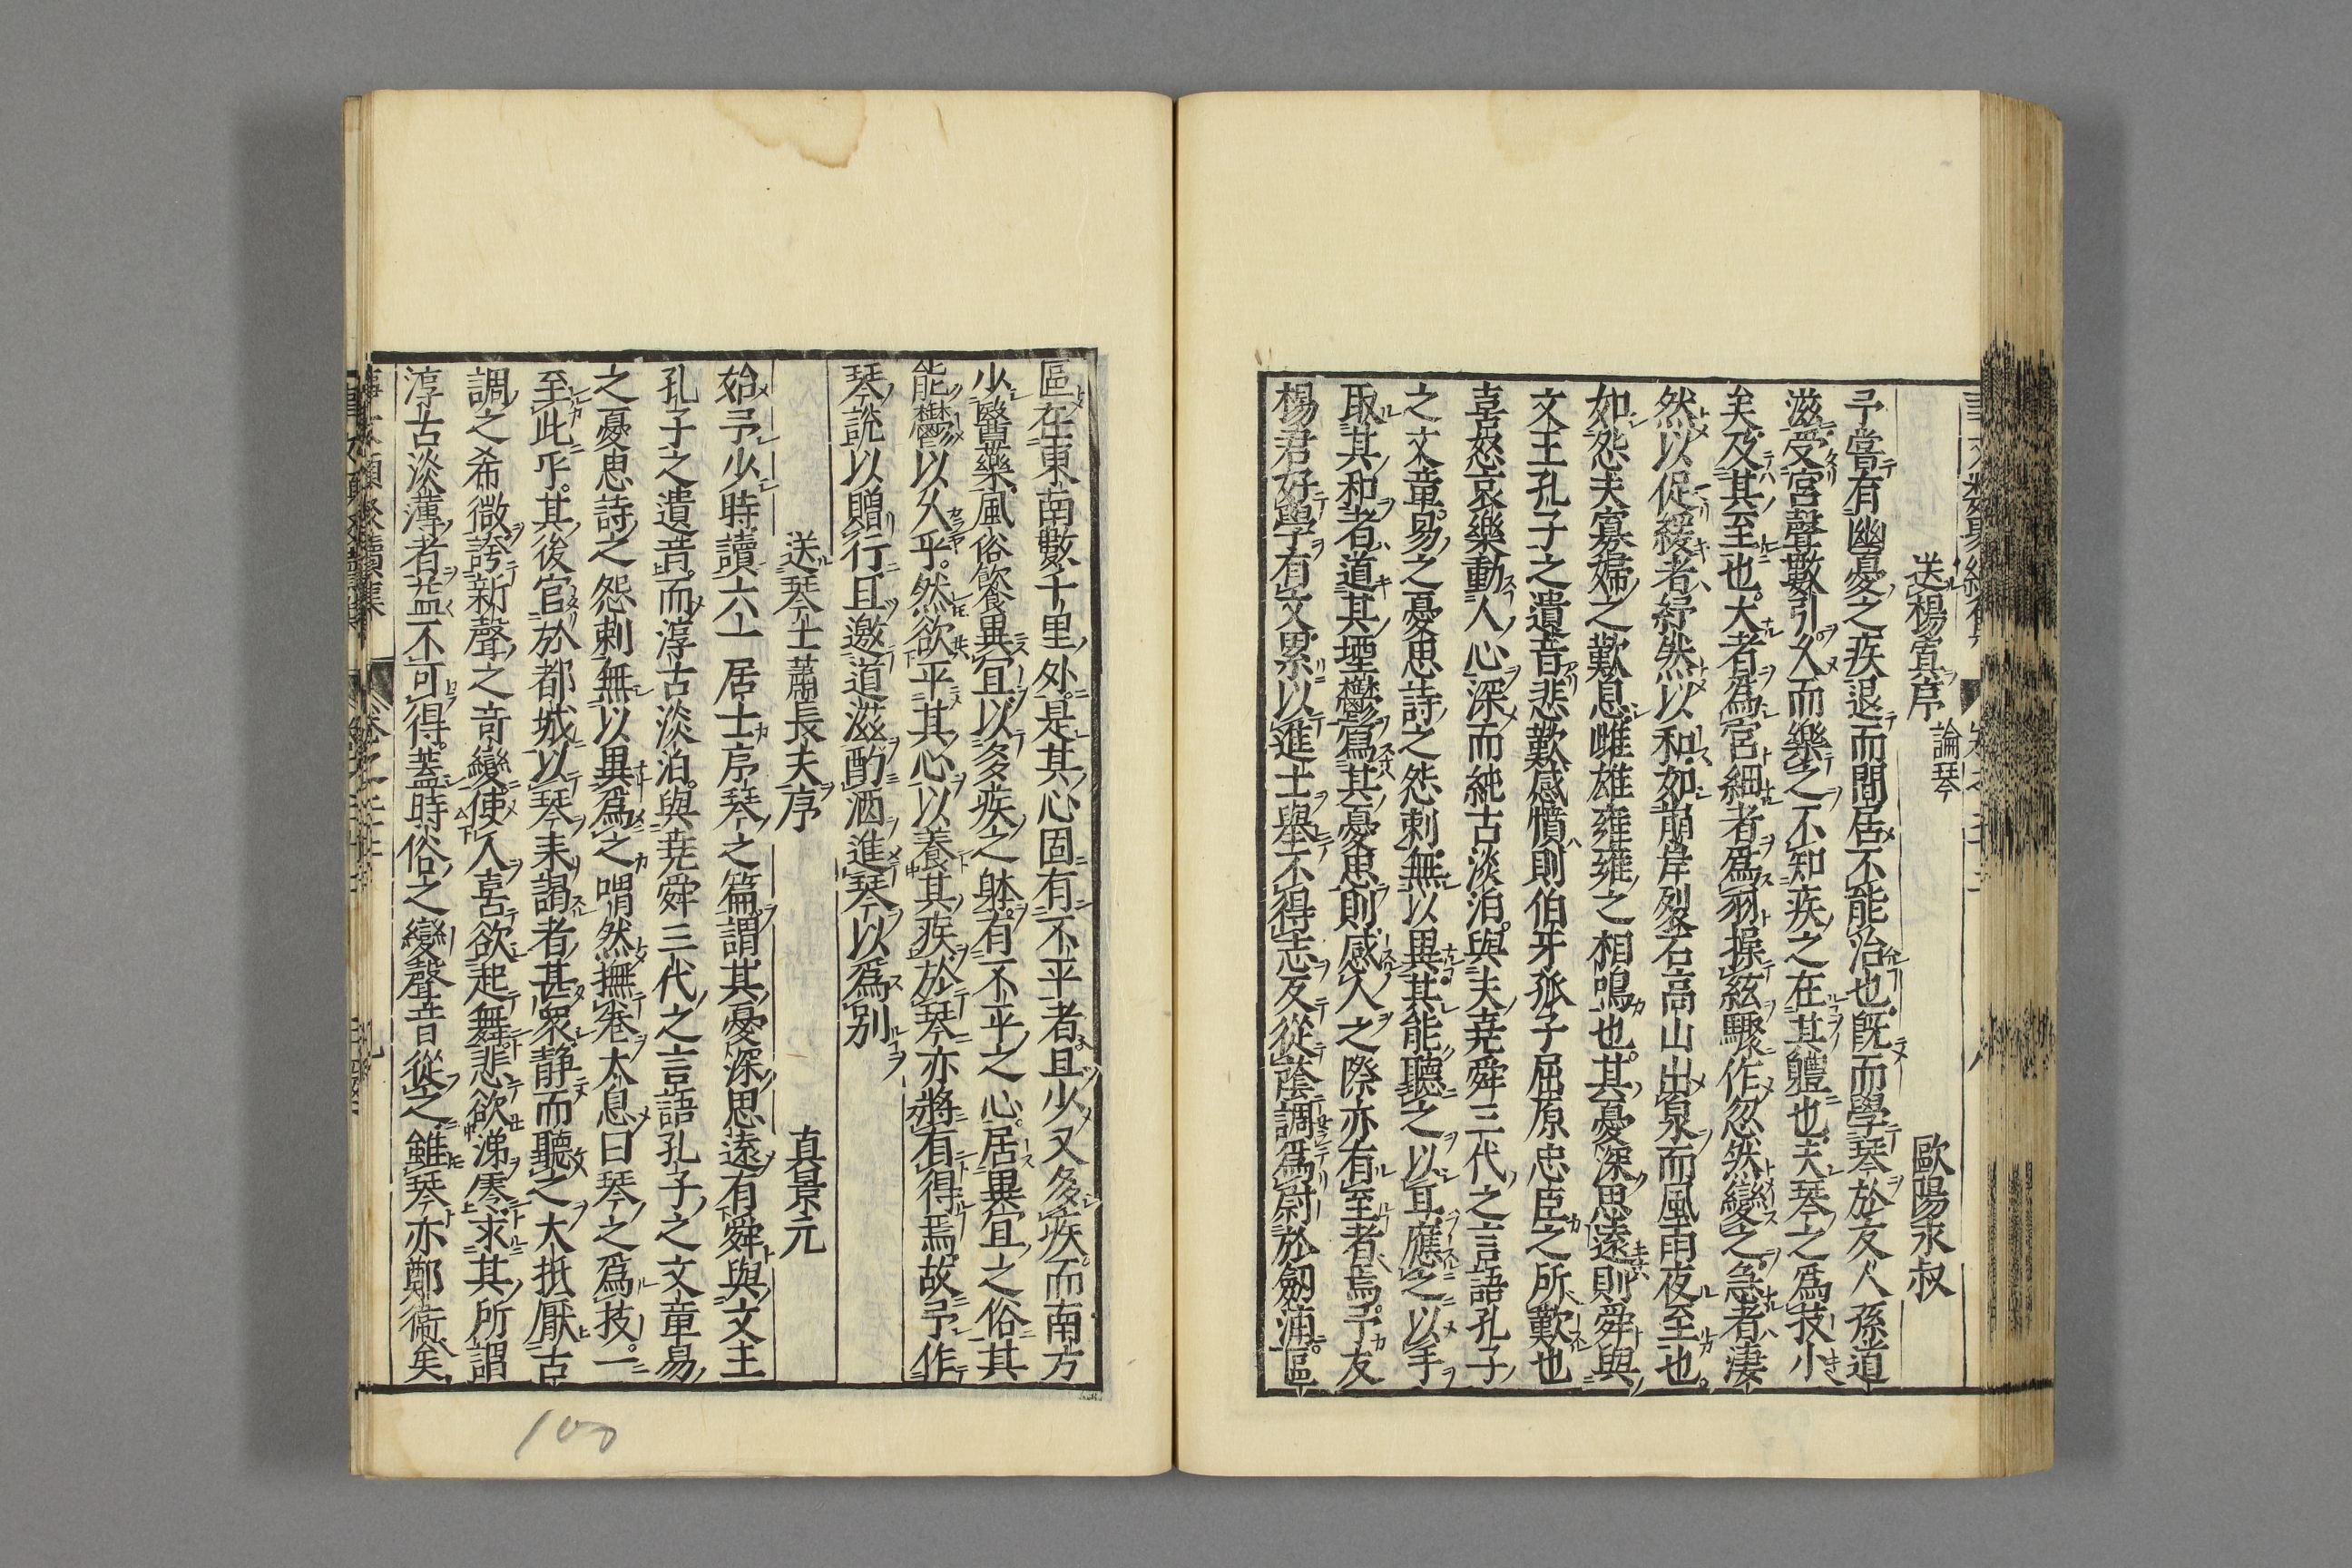 送楊寘序 論琴 歐陽永叔
予嘗有幽憂之疾退而間居不能治也既而學琴於友人孫道
滋受宮聲數引久而樂之不知疾之在其體也夫琴之爲技小
矣及其至也大者爲宮細者爲羽操絃驟作忽然變之急者凄
然以促緩者紓然以和如崩岸裂石高山出泉而風雨夜至也
如怨夫寡婦之歎息雌雄雍雍之相鳴也其憂深思遠則舜與
文王孔子之遺音悲歎感憤則伯牙孤子屈原忠臣之所歎也
喜怒哀樂動人心深而純古淡泊與夫堯舜三代之言語孔子
之文章易之憂思詩之怨刺無以異其能聽之以耳應之以手
取其和者道其堙鬱寫其憂思則感人之際亦有至者焉予友
楊君好學有文累以進士舉不得志及從蔭調爲尉於劔浦區
區在東南數千里外是其心固有不平者且少又多疾而南方
少醫藥風俗飲食異宜以多疾之躰有不平之心居異宜之俗其
能鬱鬱以久乎然欲平其心以養其疾於琴亦將有得焉故予作
琴說以贈行且邀道滋酌酒進琴以爲別
送琴士蕭長夫序 真景元
始予少時讀六一居士序琴之篇謂其憂深思遠有舜與文王
孔子之遺音而淳古淡泊與堯舜三代之言語孔子之文章易
之憂思詩之怨刺無以異爲之喟然撫卷太息曰琴之爲技一
至此乎其後官於都城以琴来謁者甚衆静而聽之大抵厭古
調之希微誇新聲之奇變使人喜欲起舞悲欲涕零求其所謂
淳古淡薄者盖不可得蓋時俗之變聲音從之雖琴亦鄭衛矣
事文類聚續集 卷之二十二 九
100